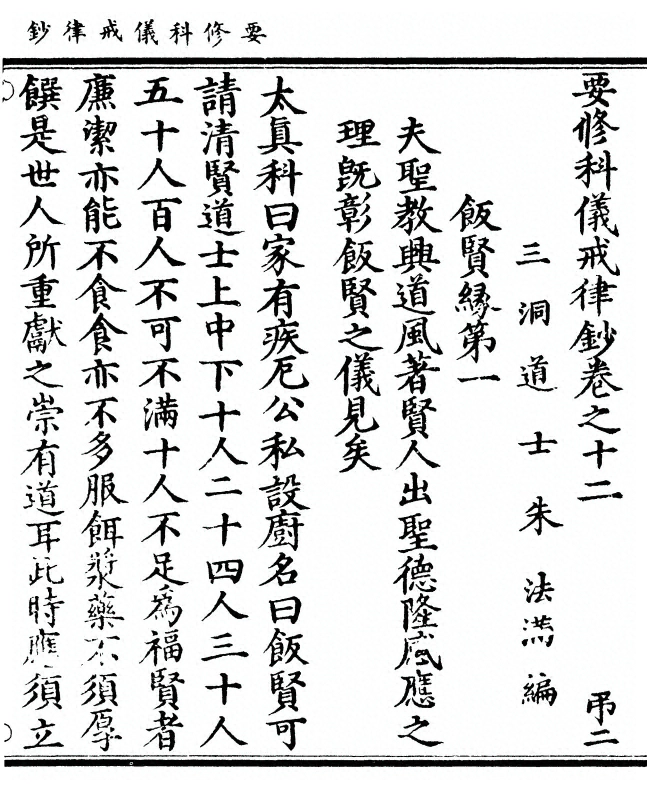 要修科儀戒律鈔
要修科儀戒律鈔卷之十二 帀二
三洞道士朱法滿編
飯賢緣第一
夫聖教興道風著賢人出聖德隆感應之
理旣彰飯賢之儀見矣
太眞科曰家有疾厄公私設廚名曰飯賢可
請清賢道士上中下十人二十四人三十人
五十人百人不可不滿十人不足爲福賢者
廉潔亦能不食食亦不多服餌漿藥不須厚
饌是世人所重獻之崇有道耳此時應須立